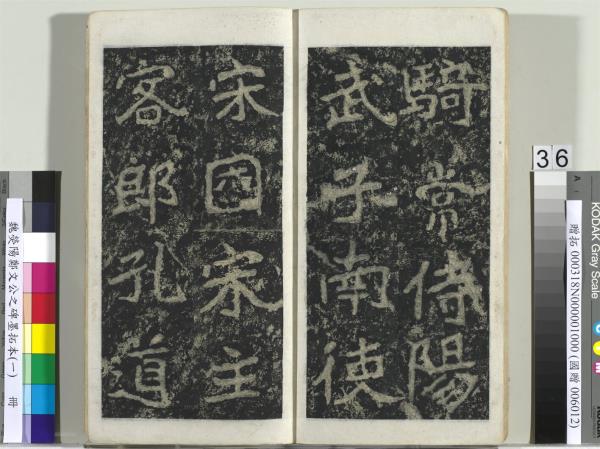 騎常侍陽
武子南使
宋國宋主
客郎孔道
魏滎陽鄭文公之碑墨拓本(一) 冊
36
贈拓 000318N000001000 (國贈 006012)
KODAK Gray Scale